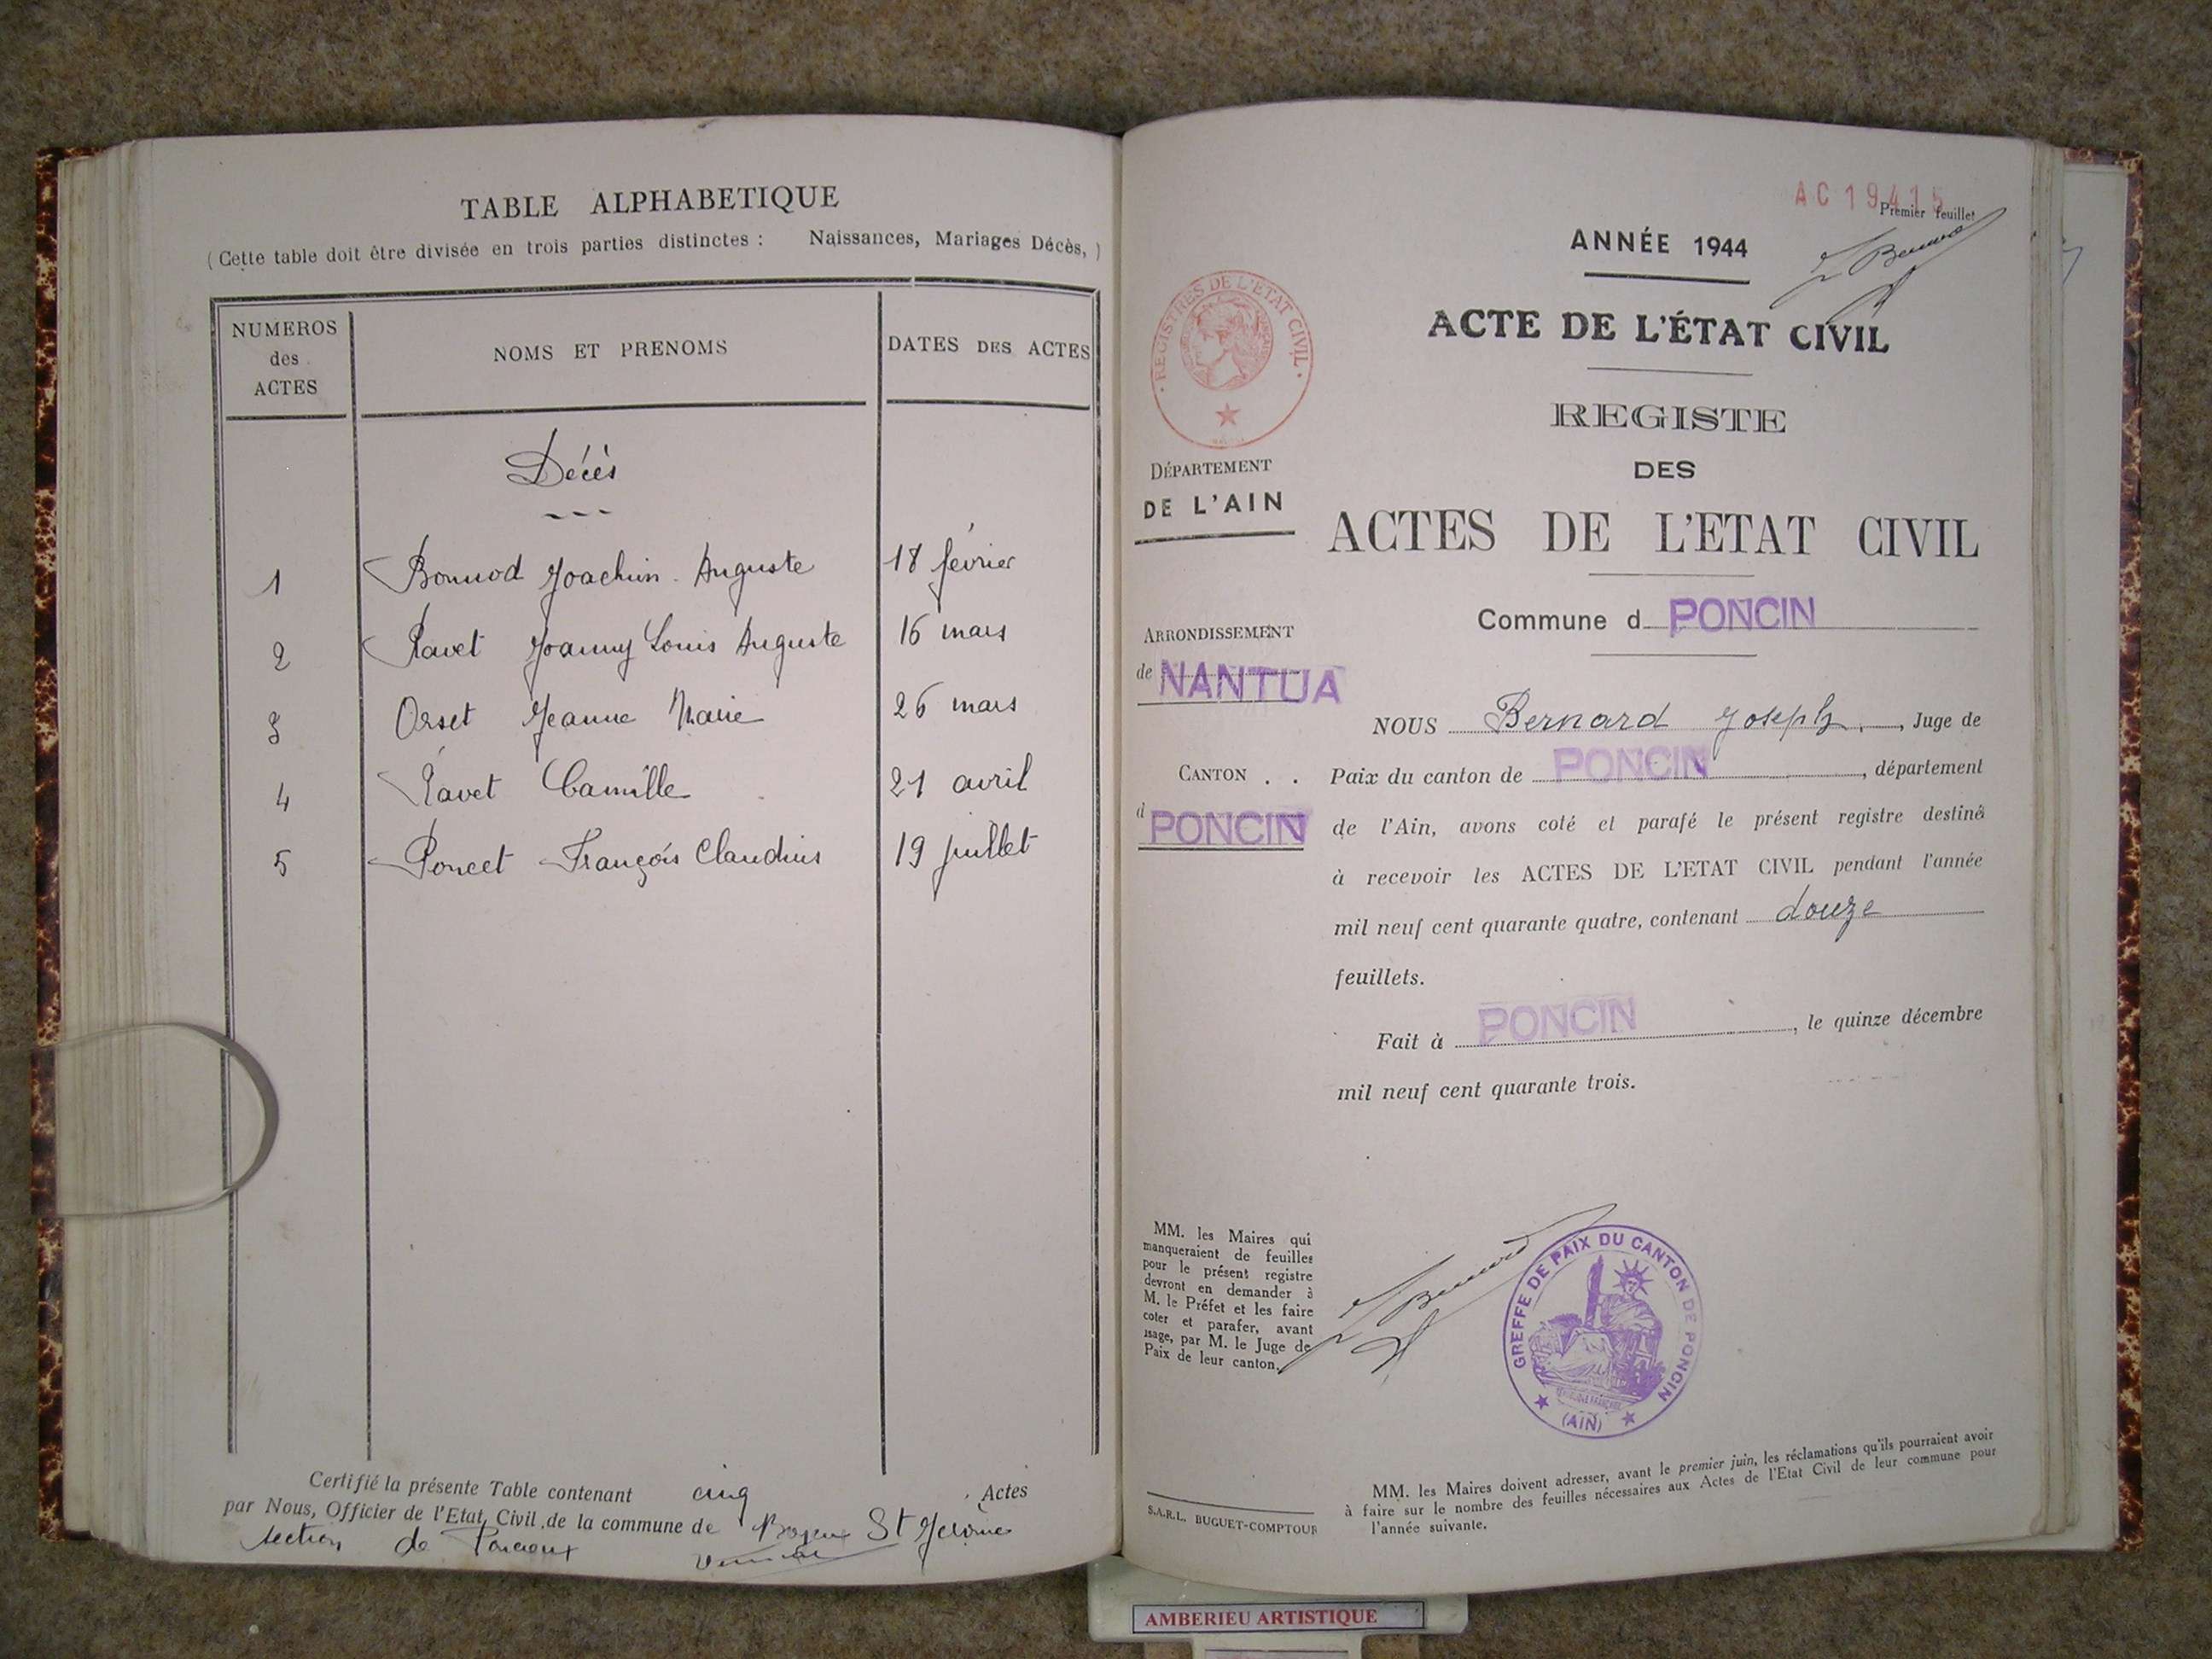 TABLE ALPHABETIQUE
(Cette table doit être divisée en trois parties distinctes : Naissances, Mariages Décès, )
NUMEROS
des
ACTES
NOMS ET PRENOMS
DATES DES ACTES
Décès
1 Bonnod Joachim Auguste 18 février
2 Ravet Joanny Louis Auguste 16 mars
3 Orset Jeanne Marie 26 mars
4 Ravet Camille 21 avril
5 Poncet François Claudius 19 juillet
Certifié la présente Table contenant cinq Actes
par Nous, Officier de l'Etat Civil de la commune de St Jérôme
section de
AC 19415
Premier feuillet
ANNÉE 1944
ACTE DE L'ÉTAT CIVIL
REGISTE
DES
ACTES DE L'ETAT CIVIL
Commune d PONCIN
REGISTRES DE L'ETAT CIVIL
DÉPARTEMENT
DE L'AIN
ARRONDISSEMENT
de NANTUA
CANTON . .
d PONCIN
NOUS Bernard Joseph, Juge de
Paix du canton de PONCIN, département
de l'Ain, avons coté et parafé le présent registre destiné
à recevoir les ACTES DE L'ETAT CIVIL pendant l'année
mil neuf cent quarante quatre, contenant douze
feuillets.
Fait à PONCIN, le quinze décembre
mil neuf cent quarante trois.
MM. les Maires qui
manqueraient de feuilles
pour le présent registre
devront en demander à
M. le Préfet et les faire
coter et parafer, avant
usage, par M. le Juge de
Paix de leur canton.
GREFFE DE PAIX DU CANTON DE PONCIN
(AIN)
MM. les Maires doivent adresser, avant le premier juin, les réclamations qu'ils pourraient avoir
à faire sur le nombre des feuilles nécessaires aux Actes de l'Etat Civil de leur commune pour
l'année suivante.
S.A.R.L. BUGUET-COMPTOUR
AMBERIEU ARTISTIQUE